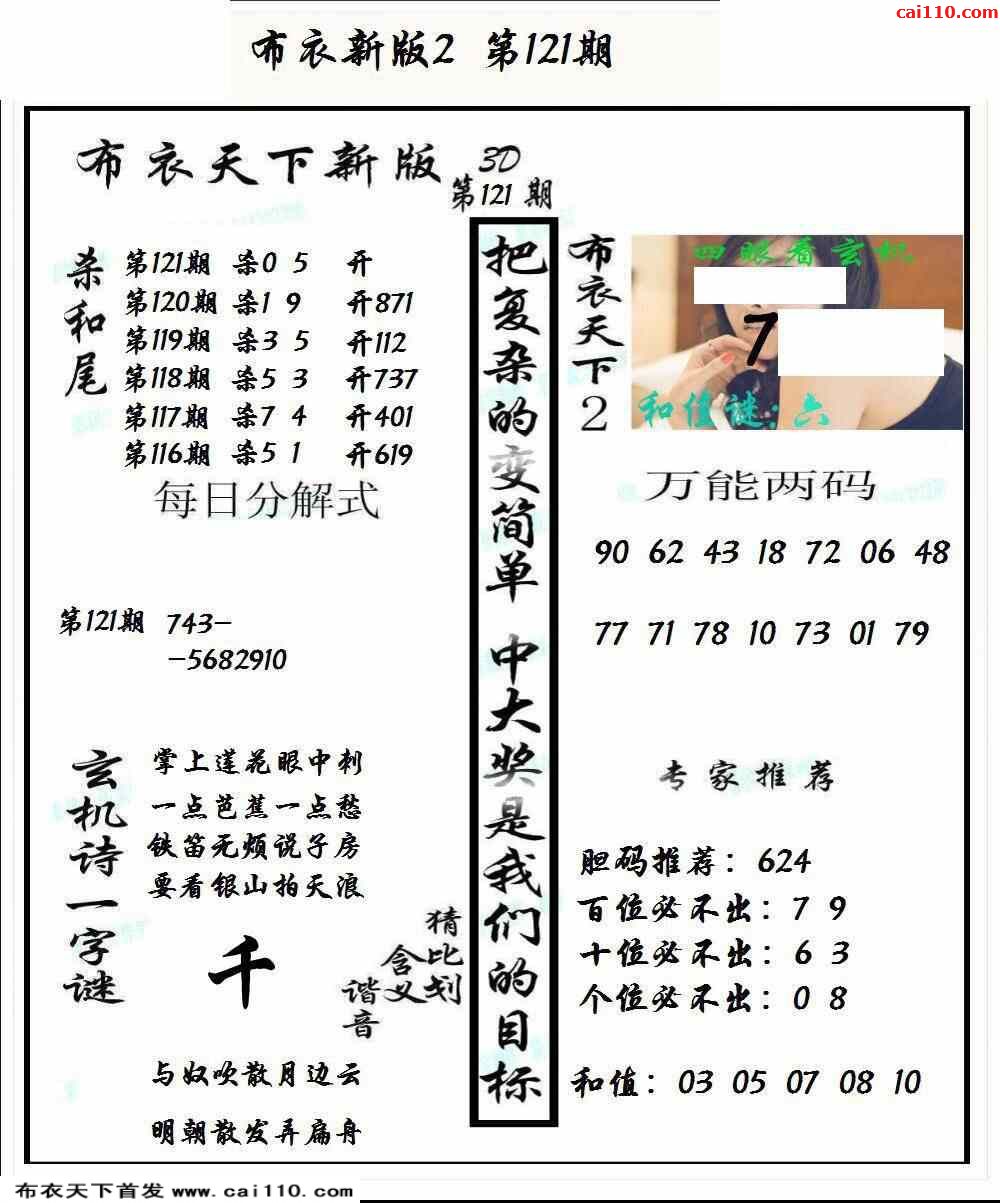 cai110.com
布衣新版2 第121期
布衣天下新版
3D
第121期
杀和尾
第121期 杀0 5 开
第120期 杀1 9 开871
第119期 杀3 5 开112
第118期 杀5 3 开737
第117期 杀7 4 开401
第116期 杀5 1 开619
每日分解式
第121期 743-
-5682910
玄机诗一字谜
掌上莲花眼中刺
一点芭蕉一点愁
铁笛无烦说子房
要看银山拍天浪
千
猜比划
含义
谐音
与奴吹散月边云
明朝散发弄扁舟
把复杂的变简单 中大奖是我们的目标
布衣天下2
四眼看玄机
7
和值谜:六
万能两码
90 62 43 18 72 06 48
77 71 78 10 73 01 79
专家推荐
胆码推荐：624
百位必不出：7 9
十位必不出：6 3
个位必不出：0 8
和值：03 05 07 08 10
布衣天下首发 www.cai110.com